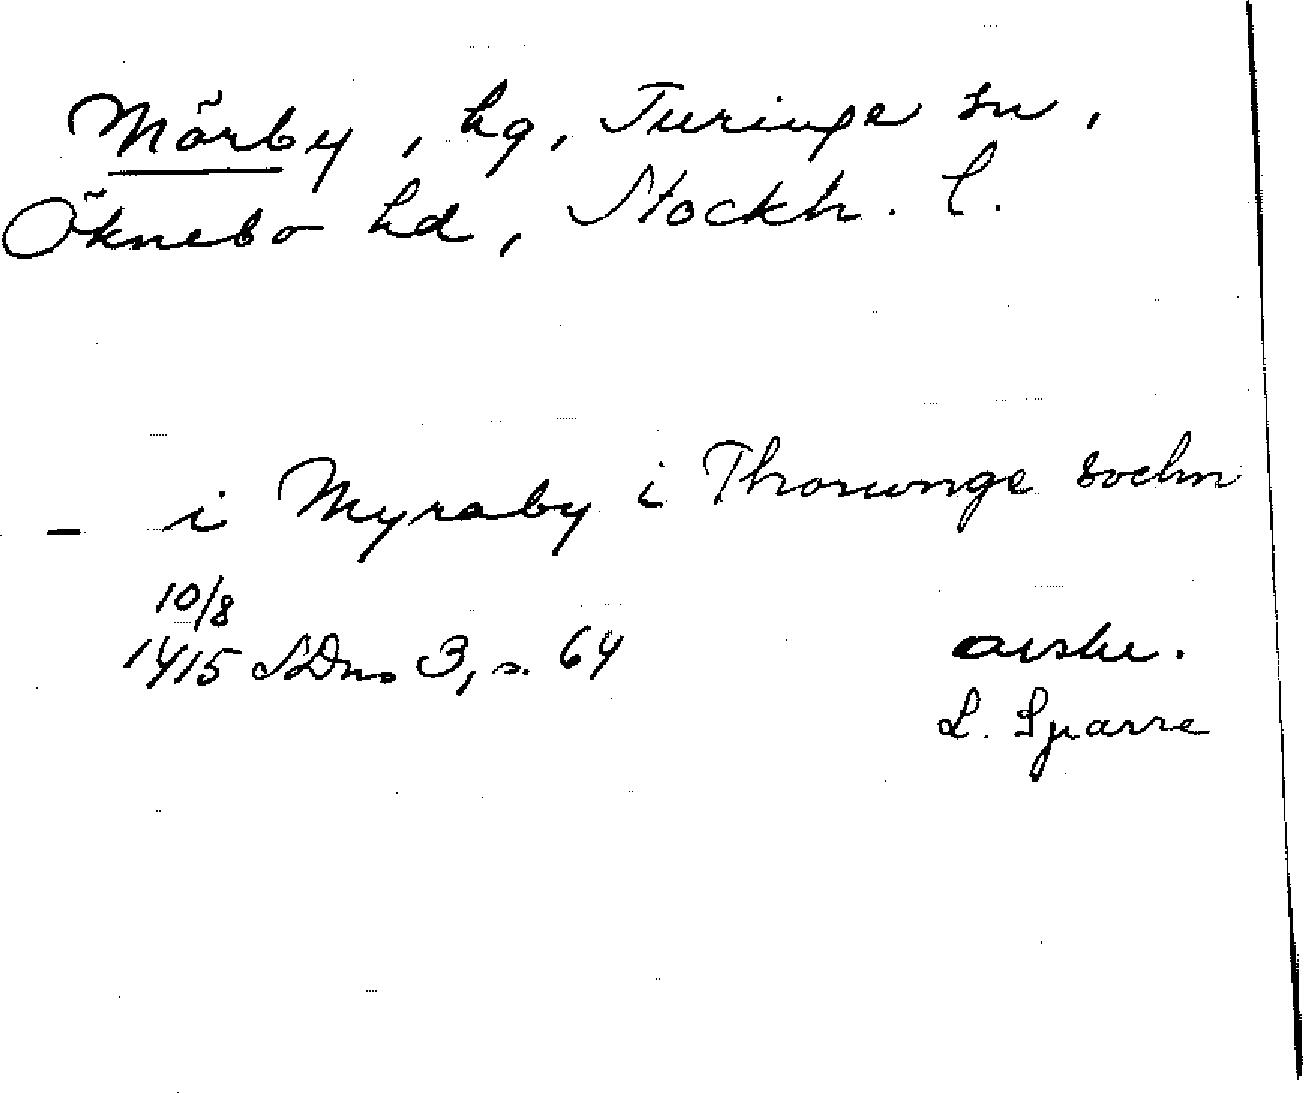 Mörby, hg, Turinge sn,
Öknebo hd, Stockh. l.
- i Myraby i Thorunge sochn
10/8
1415 SDns 3, s. 64
avskr.
L. Sparre